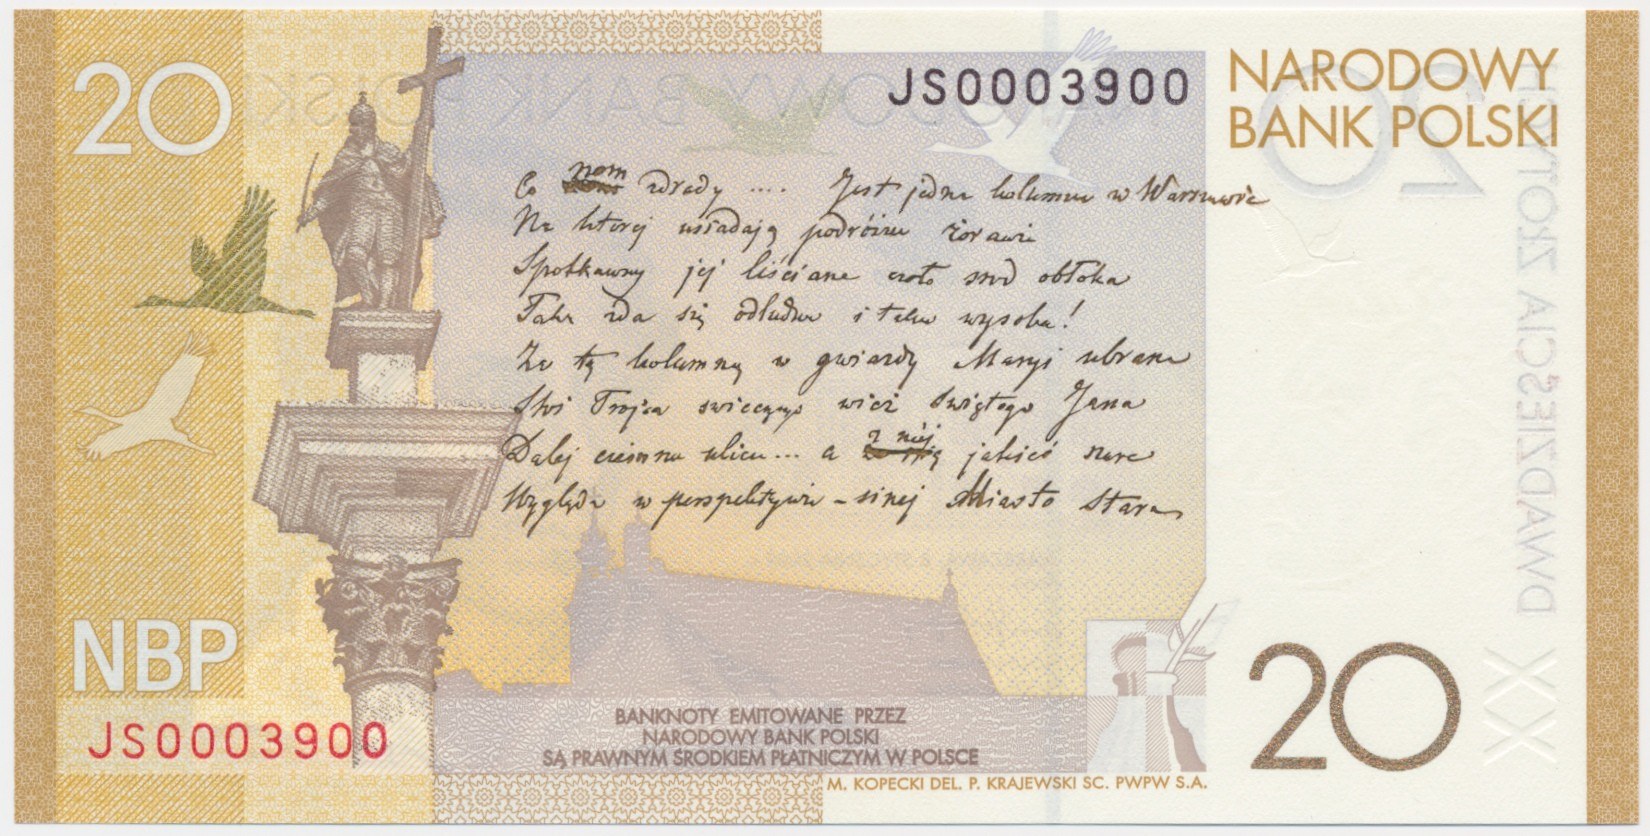 20
JS0003900
NARODOWY
BANK POLSKI
Co nom zdrady .... Jest jedna kolumna w Warszawie
Na której usiadają podróżne żorawie
Spotkawszy jej liściane czoło śród obłoka
Taka zda się odludna i taka wysoka!
Za tą kolumną w gwiazdy Maryi ubrane
Stoi Trójca świecącego wież Świętego Jana
Dalej ciemna ulica... a z niej jakieś szare
Wygląda w perspektywie – sinej Miasto Stare
NBP
JS0003900
BANKNOTY EMITOWANE PRZEZ
NARODOWY BANK POLSKI
SĄ PRAWNYM ŚRODKIEM PŁATNICZYM W POLSCE
20
M. KOPECKI DEL. P. KRAJEWSKI SC. PWPW S.A.
20
DWADZIEŚCIA ZŁOTYCH
XX